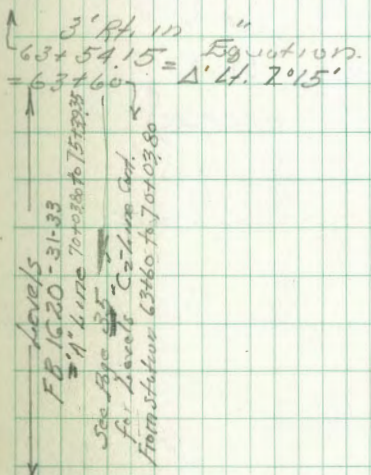 3' Rt. in "
63+54.15 = Equation.
=63+60 Δ' Lt. 7°15'
Levels
FB 1620-31-33
="A" Line 70+03.80 to 75+39.35
See Page 35
for Levels "C" Line Cont.
From station 63+60 to 70+03.80